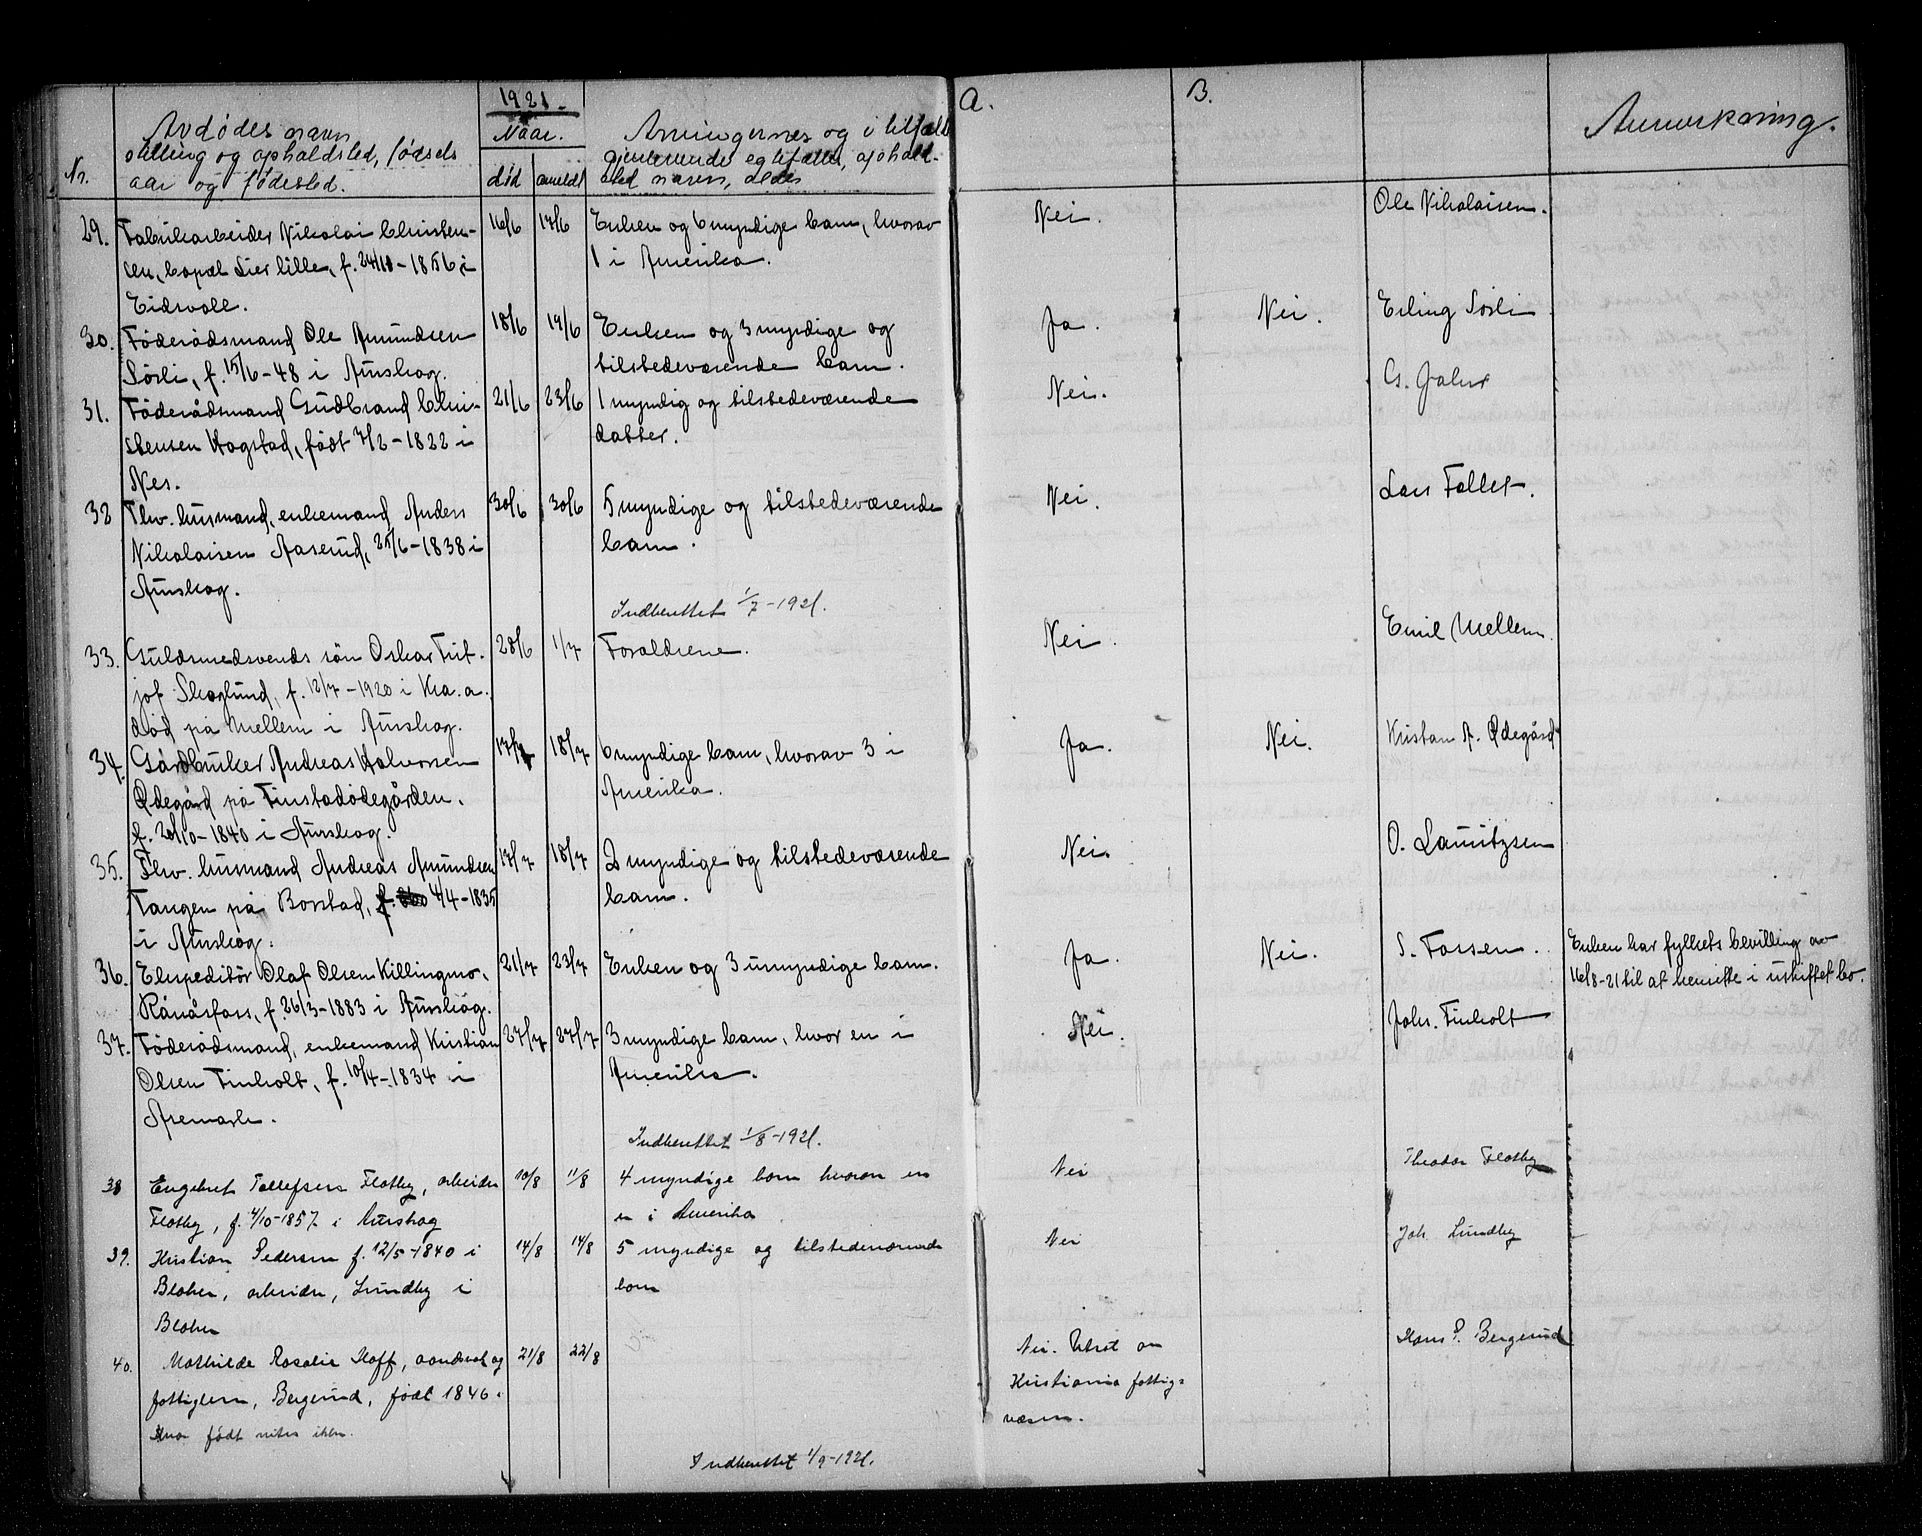 1921.
Nr.
Avdødes navn
stilling og opholdsted, fødsels
aar og fødested.
Naar.
død
anmeldt
Arvingernes og i tilfælde
gjenlevende egtefælles, ophold-
sted navn, alder
A.
B.
Anmerkning.
29. Fabrikarbeider Nikolai Christen- 16/6 17/6 Enken og 6 myndige barn, hvorav Nei. Ole Nikolaisen.
sen, bopæl Lierlille, f. 24/10-1856 i 1 i Amerika.
Eidsvoll.
30. Føderådsmand Ole Amundsen 18/6 19/6 Enken og 3 myndige og Ja. Nei. Erling Sørli
Sørli, f. 15/6-48 i Aurskog. tilstedeværende barn.
31. Føderådsmand Gudbrand Chri- 21/6 23/6 1 myndig og tilstedeværende Nei.
stensen Hogstad, født 7/2-1822 i datter.
Nes.
32 Fhv. husmand, enkemand Anders 30/6 30/6 5 myndige og tilstedeværende Nei. Lars Tollef.
Nikolaisen Aaserud, 25/6-1838 i barn.
Aurskog.
Indberettet 1/7-1921.
33. Guldsmedsvends søn Oskar Frit- 28/6 1/7 Forældrene. Nei. Emil Mellem.
jof Skoglund, f. 12/7-1920 i Kra. a.
død på Mellem i Aurskog.
34. Gårdbruker Andreas Halvorsen 17/7 18/7 6 myndige barn, hvorav 3 i Ja. Nei. Kristian A. Ødegård
Ødegård på Finstadødegården. Amerika.
f. 20/10-1840 i Aurskog.
35. Fhv. husmand Andreas Amundsen 17/7 18/7 2 myndige og tilstedeværende Nei. O. Lauritzsen
Tangen på Borstad, f. 4/4-1835 barn.
i Aurskog.
36. Ekspeditør Olaf Olsen Killingmo, 21/7 23/7 Enken og 3 umyndige barn. Ja. Nei. S. Fossen. Enken har fylkets bevilling av
Rånåsfoss, f. 26/3-1883 i Aurskog. 16/8-21 til at hensitte i uskiftet bo.
37. Føderådsmand, enkemand Kristian 27/7 27/7 3 myndige barn, hvor en i Nei. Johs. Finholt
Olsen Finholt, f. 10/4-1834 i Amerika.
Aremark.
Indberettet 1/8-1921.
38 Engebret Tollefsen Flotby, arbeider 10/8 11/8 4 myndige barn hvorav en Nei Theodor Flotby
Flotby, f. 4/10-1857 i Aurskog er i Amerika
39. Kristian Pedersen f. 12/5-1840 i 14/8 14/8 5 myndige og tilstedeværende Nei Joh. Lundby
Blaker, arbeider, Lundby i barn
Blaker
40. Mathilde Rosalie Hoff, aandssvak og 21/8 22/8 Nei. Utsat av Hans P. Bergerud
fattiglem, Bergerud, født 1846. Kristiania fattig-
Hvor født vites ikke. væsen.
Indberettet 1/9-1921.